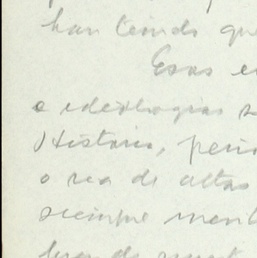 han tenido que
Esas e
e ideologias s
Historia, peri
o sea de altas
siempre ment